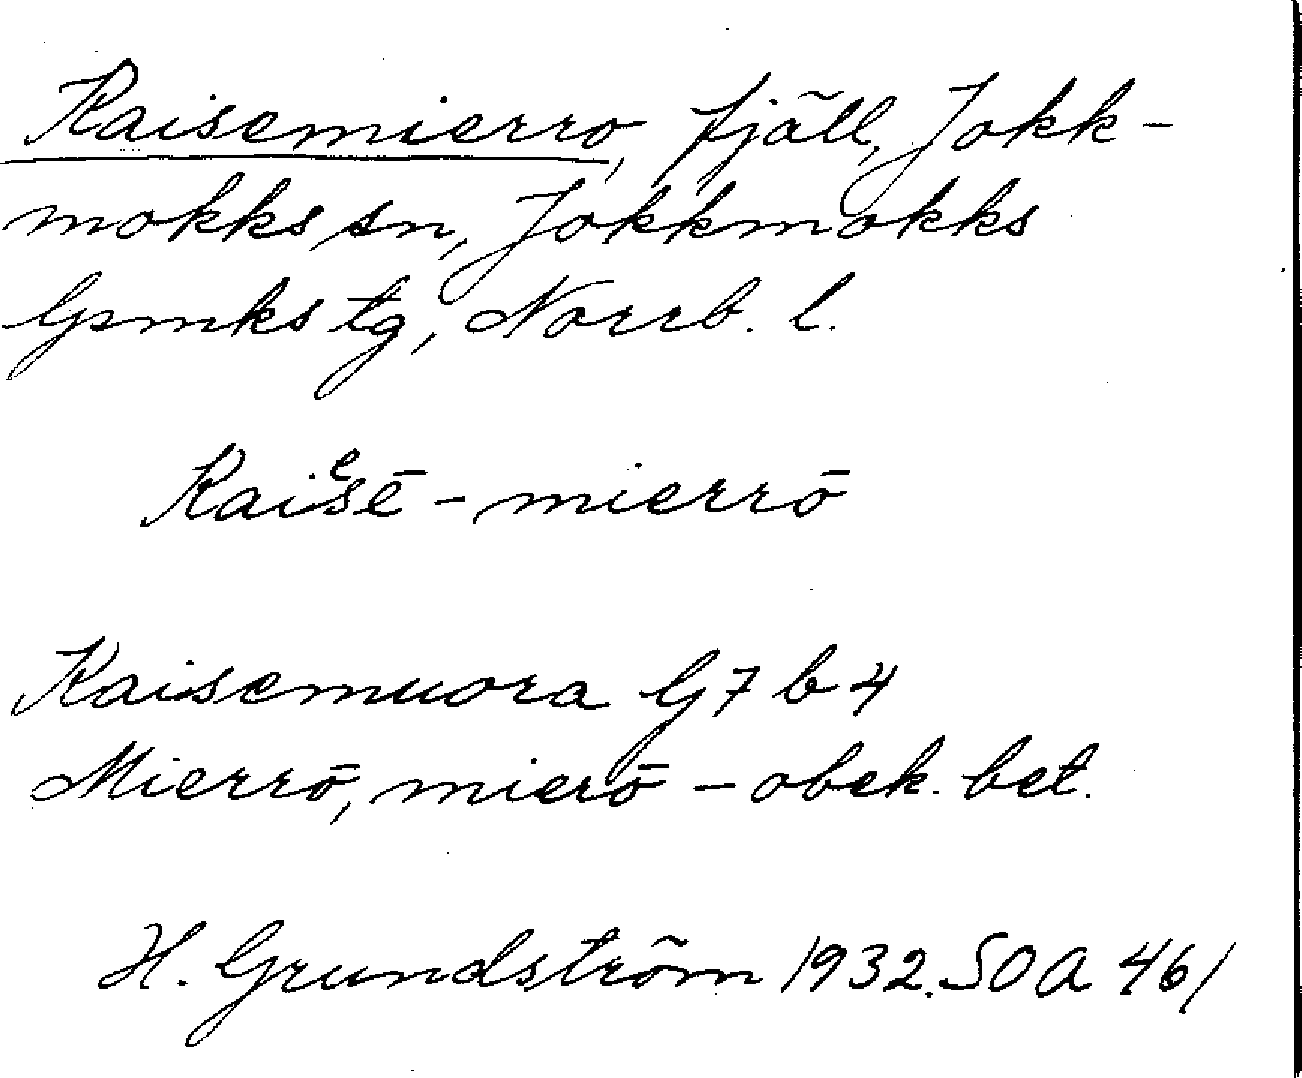 Kaisemierro, fjäll, Jokk-
mokks sn, Jokkmokks
lpmks tg, Norrb. l.
Kaiᵉsē - mierrō
Kaisemuora G7 b 4
Mierrō, mierō - obek. bet.
H. Grundström 1932. SOA 461